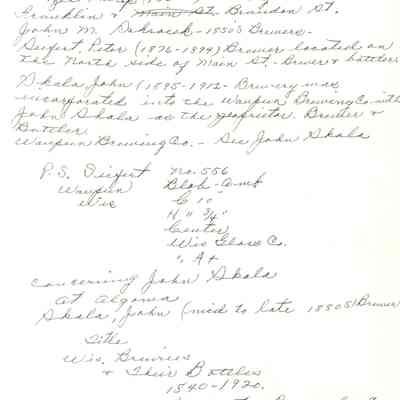 Franklin & Main St. Brandon St.
John M. - 1850's Brewers -
Seifert, Peter (1876-1894) Brewer located on
the North side of Main St. - Brewer & bottler
Skala John (1895-1912 - Brewery was
incorporated into the Waupun Brewing Co. with
John Skala as the proprietor. Brewer &
Bottler
Waupun Brewing Co. - See John Skala
P.S. Seifert No. 556
Waupun Blob - Amb
Wis C 10"
H " 3/4"
Center
Wis Glass Co.
" A+
concerning John Skala
at Algoma
Skala, John (mid to late 1880s) Brewer
Title
Wis. Breweries
& Their Bottles
1840-1920.